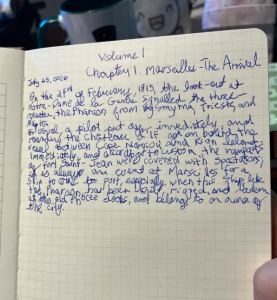 Volume 1
July 25, 2026 Chapter 1. Marseilles - The Arrival
On the 24th of February, 1815, the look-out at
Notre-Dame de la Garde signalled the three-
master, the Pharaon from Smyrna, Trieste, and
Naples.
As usual, a pilot put off immediately, and
rounding the Chateau d'If, got on board the
vessel between Cape Morgion and Rion island.
Immediately, and according to custom, the ramparts
of Fort Saint-Jean were covered with spectators;
it is always an event at Marseilles for a
ship to come to port, especially when this ship, like
the Pharaon, has been built, rigged, and laden
at the old Phocee docks, and belongs to an owner of
the city.